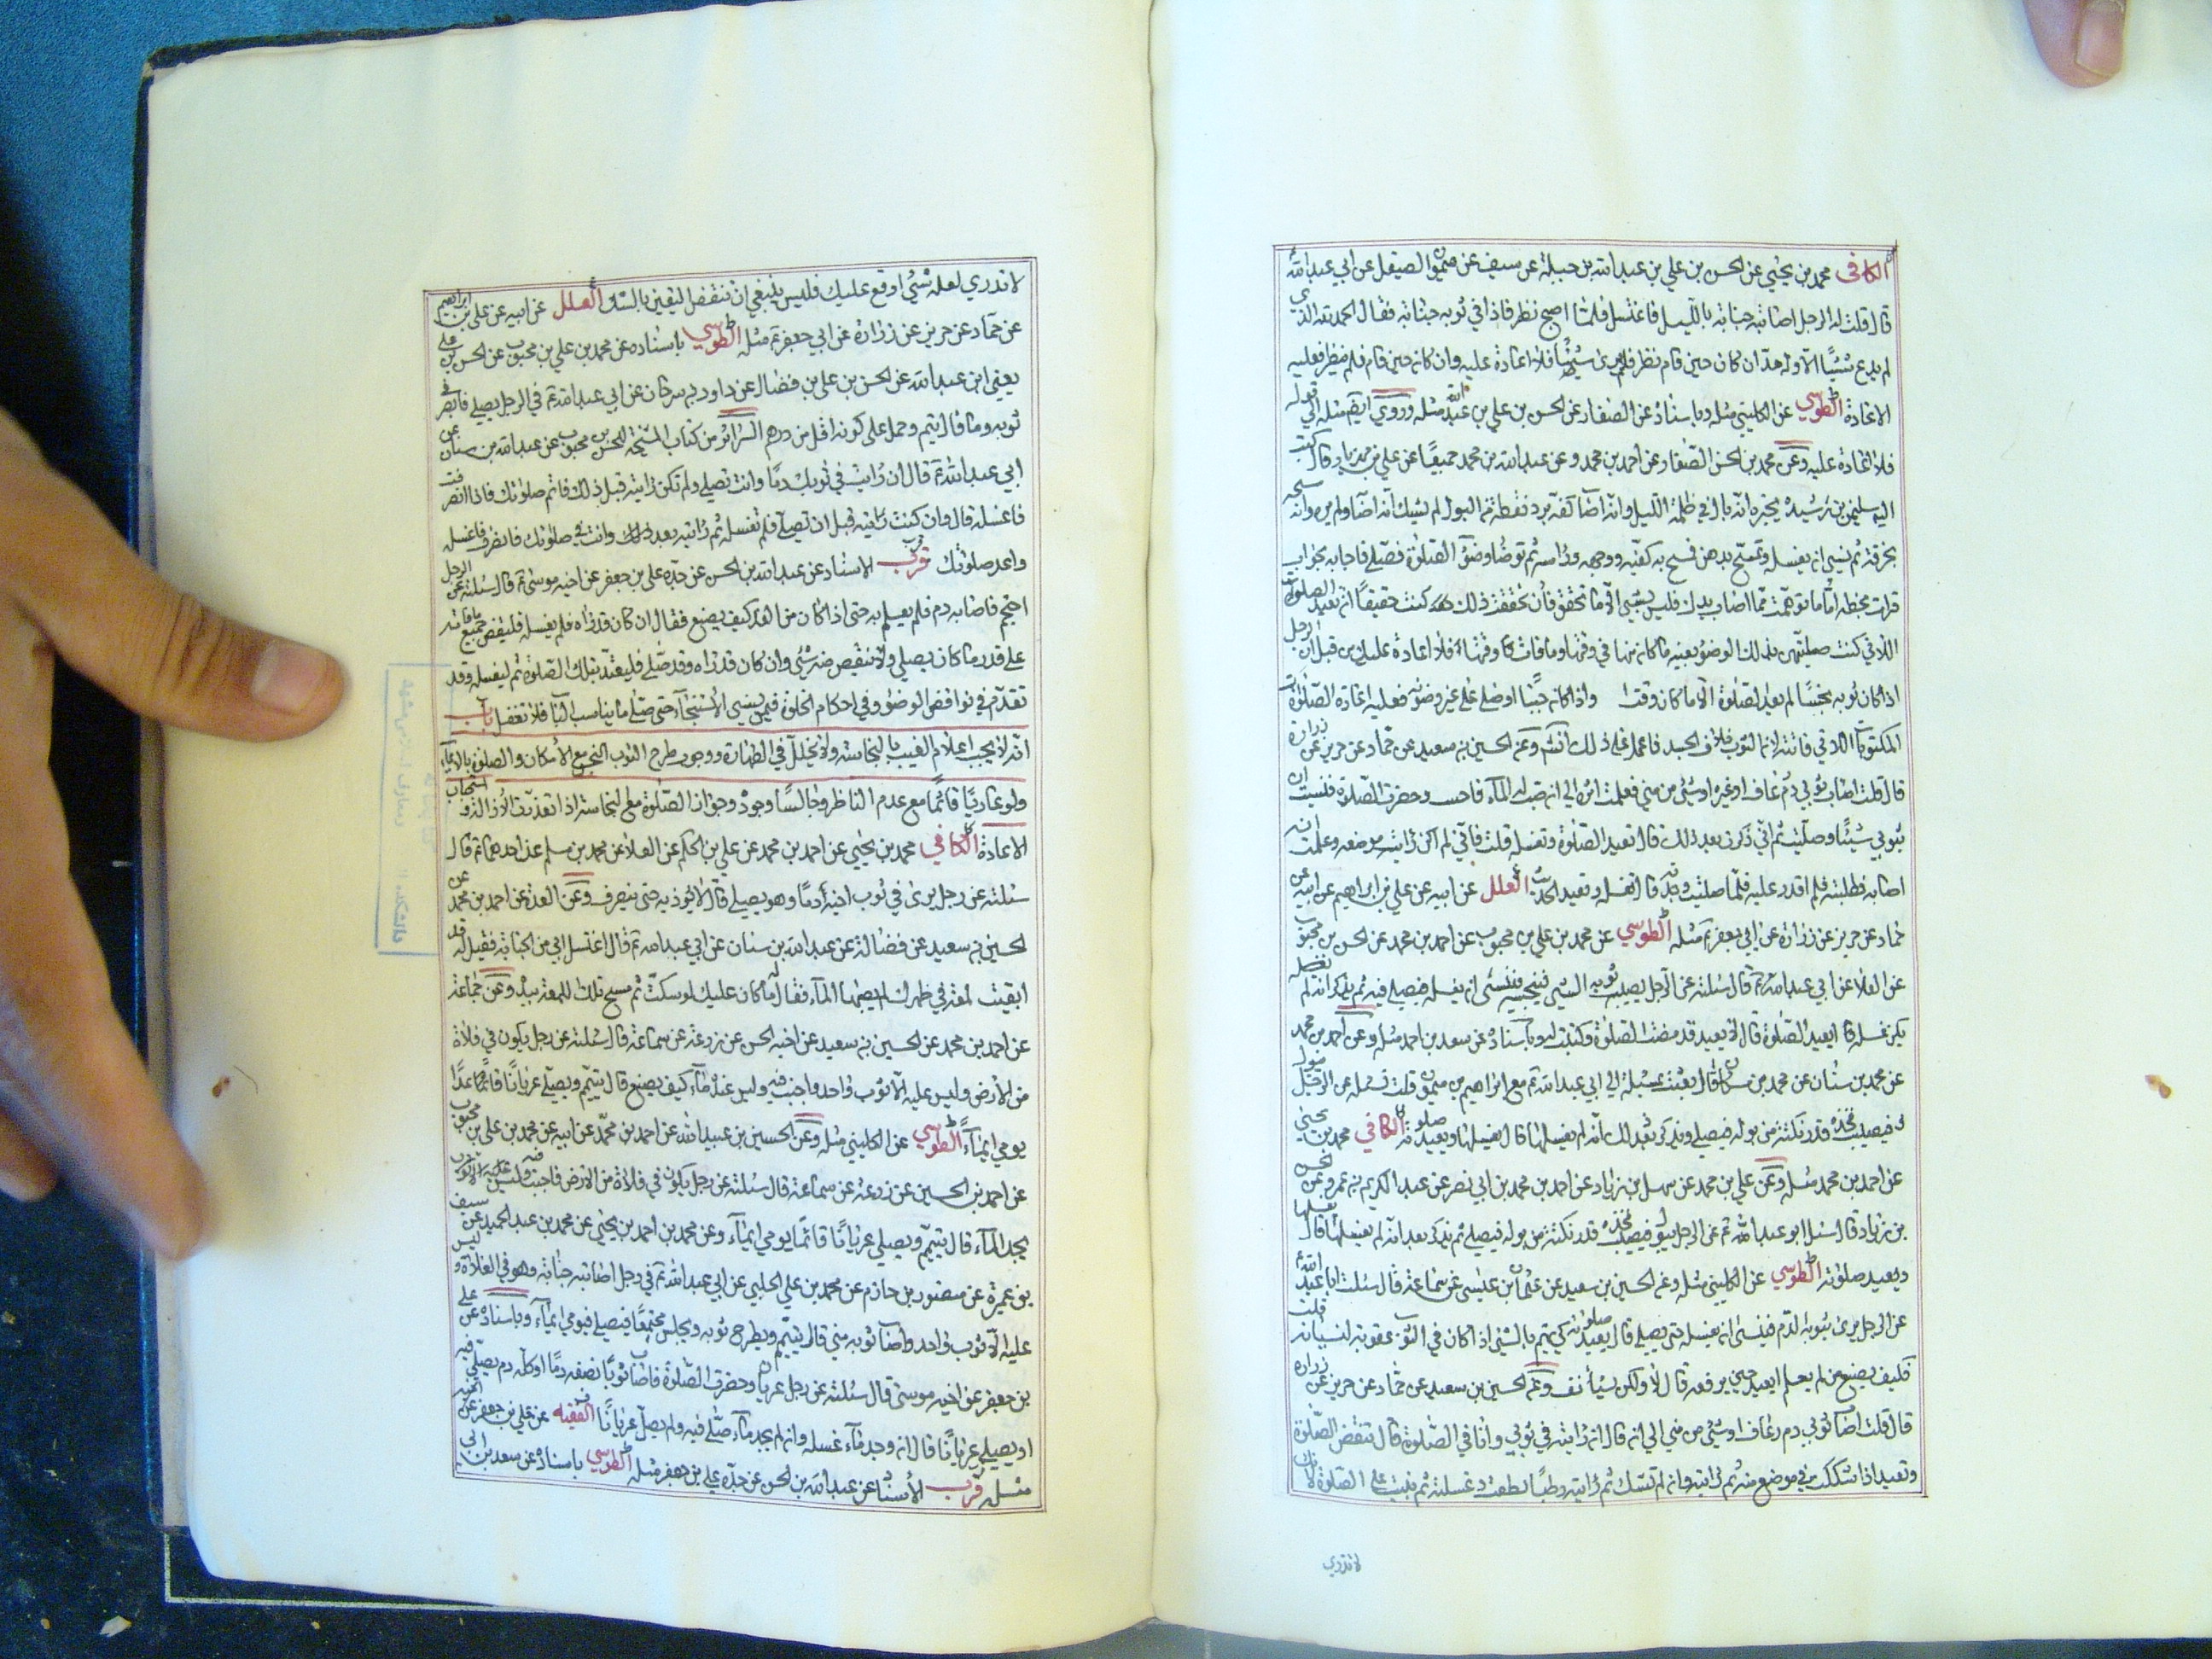 الكافي محمد بن يحيى عن الحسن بن علي بن عبد الله بن جبلة عن سيف عن ميمون الصيقل عن ابي عبد الله
قال قلت له الرجل اصابته جنابة بالليل فاغتسل فلما اصبح نظر فاذا في ثوبه جنابة فقال الحمد لله الذي
لم يدع شيئا الا وله حد ان كان حين قام نظر فلم ير شيئا فلا اعادة عليه وان كان حين قام فلم ينظر فعليه
الاعادة الطوسي عن الكليني مثله وباسناده عن الصفار عن الحسن بن علي بن عبد الله مثله وروي ايضا مثله الى قوله
فلا اعادة عليه وعن محمد بن الحسن الصفار عن احمد بن محمد وعن عبد الله بن محمد جميعا عن علي بن مهزيار قال كتب
اليه سليمن بن رشيد يخبره انه بال في ظلمة الليل وانه اصاب كفه برد نقطة من البول لم يشك انه اصابه ولم يره وانه مسحه
بخرقة ثم نسي ان يغسله وتمسح بدهن فمسح به كفيه ووجهه وراسه ثم توضا وضوء الصلوة فصلى فاجابه بجواب
قراته بخطه اما ما توهمت مما اصاب يدك فليس بشيء الا ما تحقق فان تحققت ذلك كنت حقيقا ان تعيد الصلوة
اللاتي كنت صليتهن بذلك الوضوء بعينه ما كان منها في وقتها وما فات وقتها فلا اعادة عليك من قبل ان الرجل
اذا كان ثوبه نجسا لم يعد الصلوة الا ما كان وقت واذا كان جنبا او صلى على غير وضوء فعليه اعادة الصلوة
المكتوبات اللاتي فاتته لان الثوب خلاف الجسد فاعمل على ذلك انشا وعن الحسين بن سعيد عن حماد عن حريز عن زرارة
قال قلت اصاب ثوبي دم رعاف او غيره او شيء من مني فعلمت اثره الى ان اصيب له الماء فاصبت وحضرت الصلوة فنسيت ان
بثوبي شيئا وصليت ثم اني ذكرت بعد ذلك قال تعيد الصلوة وتغسله قلت فاني لم اكن رايت موضعه وعلمت انه
اصابه فطلبته فلم اقدر عليه فلما صليت وجدته قال تغسله وتعيد الحديث العلل عن ابيه عن علي بن ابراهيم عن ابيه عن
حماد عن حريز عن زرارة عن ابي جعفر ع مثله الطوسي عن محمد بن علي بن محبوب عن احمد بن محمد عن الحسن بن محبوب
عن العلا عن ابي عبد الله ع قال سئلته عن الرجل يصيب ثوبه الشيء فينجسه فينسى ان يغسله فيصلي فيه ثم يذكر انه لم
يكن غسله ايعيد الصلوة قال لا يعيد قد مضت الصلوة وكتبت له وباسناده عن سعد بن احمد مثله وعن احمد بن محمد
عن محمد بن سنان عن محمد بن سكان قال بعثت بمسئلة الى ابي عبد الله ع مع ابراهيم بن ميمون قلت تسئله عن الرجل يبول
فيصيب فخذه قدر نكتة من بوله فيصلي ويذكر بعد ذلك انه لم يغسلها قال يغسلها ويعيد صلوته الكافي محمد بن يحيى
عن احمد بن محمد مثله وعن علي بن محمد عن سهل بن زياد عن احمد بن محمد بن ابي نصر عن عبد الكريم بن عمرو عن الحسن
بن زياد قال سئل ابو عبد الله ع عن الرجل يبول فيصيب فخذه قدر نكتة من بوله فيصلي ثم يذكر بعد انه لم يغسلها قال يغسلها
ويعيد صلوته الطوسي عن الكليني مثله وعن الحسين بن سعيد عن عثمان بن عيسى عن سماعة قال سئلت ابا عبد الله
عن الرجل يرى بثوبه الدم فينسى ان يغسله حتى يصلي قال يعيد صلوته كي يهتم بالشيء اذا كان في الثوب عقوبة لنسيانه قلت
فكيف يصنع من لم يعلم ايعيد حين يرفعه قال لا ولكن يستانف وعن الحسين بن سعيد عن حماد عن حريز عن زرارة
قال قلت اصاب ثوبي دم رعاف او شيء من مني الى ان قال ان رايته في ثوبي وانا في الصلوة قال تنقض الصلوة
وتعيد اذا شككت في موضع منه ثم رايته وان لم تشك ثم رايته رطبا قطعت وغسلته ثم بنيت على الصلوة لانك
لا تدري
لا تدري لعله شيء اوقع عليك فليس ينبغي ان تنقض اليقين بالشك العلل عن ابيه عن علي بن ابراهيم
عن حماد عن حريز عن زرارة عن ابي جعفر ع مثله الطوسي باسناده عن محمد بن علي بن محبوب عن الحسن بن علي
يعني ابن عبد الله عن الحسن بن علي بن فضال عن داود بن سرحان عن ابي عبد الله ع في الرجل يصلي فابصر في
ثوبه دما قال يتم وحمل على كونه اقل من درهم السرائر من كتاب المشيخة للحسن بن محبوب عن عبد الله بن سنان عن
ابي عبد الله ع قال ان رايت في ثوبك دما وانت تصلي ولم تكن رايته قبل ذلك فاتم صلوتك فاذا انصرفت
فاغسله قال وان كنت رايته قبل ان تصلي فلم تغسله ثم رايته بعد ذلك وانت في صلوتك فانصرف فاغسله
واعد صلوتك قرب الاسناد عن عبد الله بن الحسن عن جده علي بن جعفر عن اخيه موسى ع قال سئلته عن الرجل
احتجم فاصابه دم فلم يعلم به حتى اذا كان من الغد كيف يصنع فقال ان كان قد رآه فلم يغسله فليقض جميع ما فاته
على قدر ما كان يصلي ولا ينقص منه شيء وان كان قد رآه وقد صلى فليعتد بتلك الصلوة ثم ليغسله وقد
تقدم في نواقض الوضوء وفي احكام الخلوة فيمن نسي الاستنجاء حتى صلى ما يناسب الباب فلا تغفل باب
انه لا يجب اعلام الغير بالنجاسة ولا بخلل في الطهارة ووجوب طرح الثوب النجس مع الامكان والصلوة بالايماء
ولو عاريا قائما مع عدم الناظر وجالسا مع وجوده وجواز الصلوة مع النجاسة اذا تعذرت الازالة واستحباب
الاعادة الكافي محمد بن يحيى عن احمد بن محمد عن علي بن الحكم عن العلا عن محمد بن مسلم عن احدهما ع قال
سئلته عن رجل يرى في ثوب اخيه دما وهو يصلي قال لا يؤذيه حتى ينصرف وعن العدة عن احمد بن محمد عن
الحسين بن سعيد عن فضالة عن عبد الله بن سنان عن ابي عبد الله ع قال اغتسل ابي من الجنابة فقيل له قد
ابقيت لمعة في ظهرك لم يصبها الماء فقال له ما كان عليك لو سكت ثم مسح تلك اللمعة بيده وعن جماعة
عن احمد بن محمد عن الحسين بن سعيد عن اخيه الحسن عن زرعة عن سماعة قال سئلته عن رجل يكون في فلاة
من الارض وليس عليه الا ثوب واحد واجنب فيه وليس عنده ماء كيف يصنع قال يتيمم ويصلي عريانا قاعدا
يومي ايماء الطوسي عن الكليني مثله وعن الحسين بن عبيد الله عن احمد بن محمد عن ابيه عن محمد بن علي بن محبوب
عن احمد بن الحسين عن زرعة عن سماعة قال سئلته عن رجل يكون في فلاة من الارض فاجنب وليس عليه الا ثوب
يجد الماء قال يتيمم ويصلي عريانا قائما يومي ايماء وعن محمد بن احمد بن يحيى عن محمد بن عبد الحميد عن سيف
بن عميرة عن منصور بن حازم عن محمد بن علي الحلبي عن ابي عبد الله ع في رجل اصابته جنابة وهو في الفلاة وليس
عليه الا ثوب واحد واصاب ثوبه مني قال يتيمم ويطرح ثوبه ويجلس مجتمعا فيصلي فيومي ايماء وباسناده عن علي
بن جعفر عن اخيه موسى قال سئلته عن رجل عريان وحضرت الصلوة فاصاب ثوبا نصفه دما او كله دم يصلي فيه
او يصلي عريانا قال ان وجد ماء غسله وان لم يجد ماء صلى فيه ولم يصل عريانا الفقيه عن علي بن جعفر عن اخيه
مثله قرب الاسناد عن عبد الله بن الحسن عن جده علي بن جعفر مثله الطوسي باسناده عن سعد بن ابي